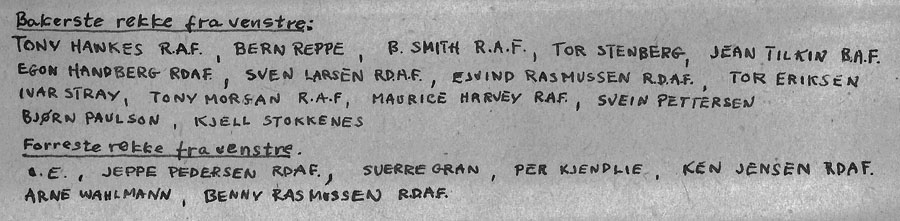 Bakerste rekke fra venstre:
TONY HAWKES R.A.F. , BERN REPPE , B. SMITH R.A.F. , TOR STENBERG, JEAN TILKIN B.A.F.
EGON HANDBERG RDAF , SVEN LARSEN R.D.A.F. , EJVIND RASMUSSEN R.D.A.F. , TOR ERIKSEN
IVAR STRAY, TONY MORGAN R.A.F, MAURICE HARVEY RAF. , SVEIN PETTERSEN
BJØRN PAULSON , KJELL STOKKENES
Forreste rekke fra venstre.
E. , JEPPE PEDERSEN RDAF. , SUERRE GRAN , PER KJENDLIE , KEN JENSEN RDAF.
ARNE WAHLMANN , BENNY RASMUSSEN R.D.A.F.